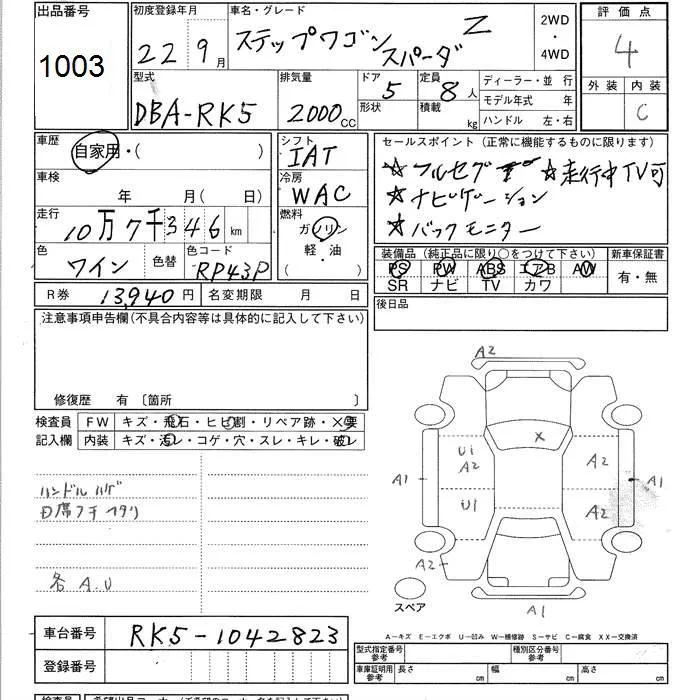 出品番号
1003
初度登録年月
22 9月
車名・グレード
ステップワゴン スパーダ Z
2WD
・
4WD
評価点
4
外装 内装
C
型式
DBA-RK5
排気量
2000 CC
ドア 5
形状
定員 8 人
積載 kg
ディーラー・並 行
モデル年式 年
ハンドル 左・右
車歴
自家用・( )
シフト
IAT
セールスポイント (正常に機能するものに限ります)
☆フルセグ ☆走行中TV可
☆ナビゲーション
☆バックモニター
車検
年 月(日)
冷房
WAC
走行
10万7千346km
燃料
ガソリン
軽・油
色
ワイン
色替
色コード
RP43P
装備品 (純正品に限り○をつけて下さい)
新車保証書
PS PW ABS エアB AW
SR ナビ TV カワ
有・無
R券 13,940円
名変期限 月 日
後日品
注意事項申告欄(不具合内容等は具体的に記入して下さい)
修復歴 有 〔箇所 〕
検査員
記入欄
FW キズ・飛石・ヒビ割・リペア跡・X要
内装 キズ・汚レ・コゲ・穴・スレ・キレ・破レ
ハンドル ハゲ
各 A.U
A2
X
U1
A2
A2
A1
A1
U1
A2
A2
A1
スペア
A-キズ E-エクボ U-凹み W-補修跡 S-サビ C-腐食 XX-交換済
車台番号
RK5-1042823
登録番号
型式指定番号
参考
種別区分番号
参考
車庫証明用
参考
長さ cm
幅 cm
高さ cm